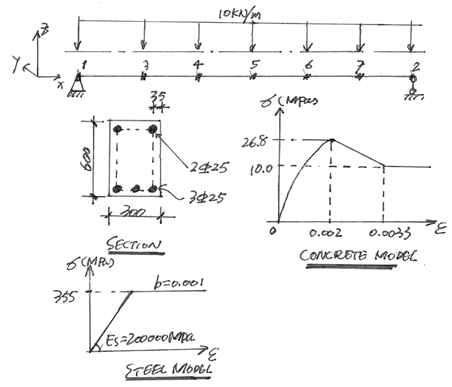 10KN/m
Z
Y
x
1 3 4 5 6 7 2
35
600
2Φ25
3Φ25
300
SECTION
σ(MPa)
26.8
10.0
0 0.002 0.0033 ε
CONCRETE MODEL
σ(MPa)
355
b=0.001
Es=200000MPa
ε
STEEL MODEL